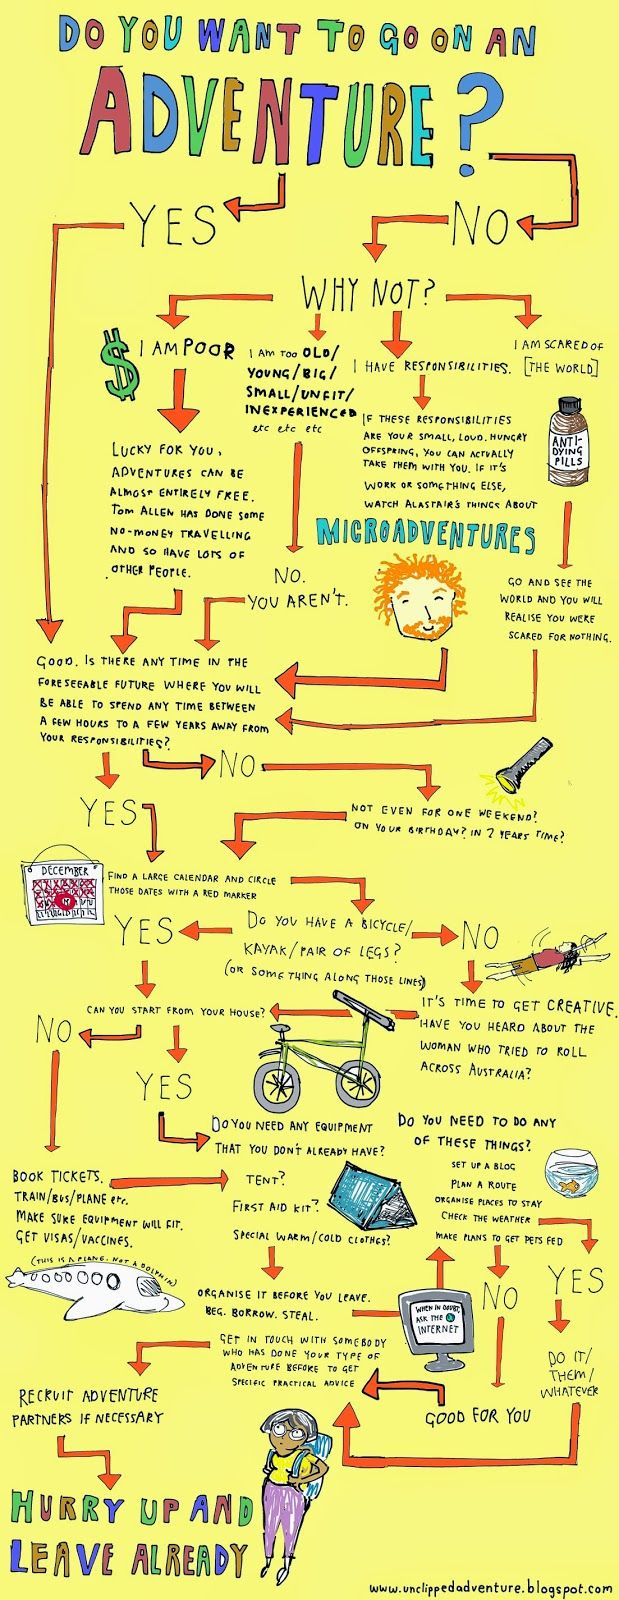 DO YOU WANT TO GO ON AN
ADVENTURE?
YES
NO
WHY NOT?
I AM POOR
LUCKY FOR YOU,
ADVENTURES CAN BE
ALMOST ENTIRELY FREE.
TOM ALLEN HAS DONE SOME
NO-MONEY TRAVELLING
AND SO HAVE LOTS OF
OTHER PEOPLE.
I AM TOO OLD/
YOUNG/BIG/
SMALL/UNFIT/
INEXPERIENCED
etc etc etc
NO.
YOU AREN'T.
I HAVE RESPONSIBILITIES.
IF THESE RESPONSIBILITIES
ARE YOUR SMALL, LOUD, HUNGRY
OFFSPRING, YOU CAN ACTUALLY
TAKE THEM WITH YOU. IF IT'S
WORK OR SOMETHING ELSE,
WATCH ALASTAIR'S THINGS ABOUT
MICROADVENTURES
I AM SCARED OF
[THE WORLD]
ANTI-
DYING
PILLS
GO AND SEE THE
WORLD AND YOU WILL
REALISE YOU WERE
SCARED FOR NOTHING.
GOOD. IS THERE ANY TIME IN THE
FORESEEABLE FUTURE WHERE YOU WILL
BE ABLE TO SPEND ANY TIME BETWEEN
A FEW HOURS TO A FEW YEARS AWAY FROM
YOUR RESPONSIBILITIES?
NO
YES
NOT EVEN FOR ONE WEEKEND?
ON YOUR BIRTHDAY? IN 2 YEARS TIME?
DECEMBER
FIND A LARGE CALENDAR AND CIRCLE
THOSE DATES WITH A RED MARKER
DO YOU HAVE A BICYCLE/
KAYAK/PAIR OF LEGS?
(OR SOMETHING ALONG THOSE LINES)
YES
NO
IT'S TIME TO GET CREATIVE.
HAVE YOU HEARD ABOUT THE
WOMAN WHO TRIED TO ROLL
ACROSS AUSTRALIA?
CAN YOU START FROM YOUR HOUSE?
NO
YES
DO YOU NEED ANY EQUIPMENT
THAT YOU DON'T ALREADY HAVE?
TENT?
FIRST AID KIT?
SPECIAL WARM/COLD CLOTHES?
BOOK TICKETS.
TRAIN/BUS/PLANE etc.
MAKE SURE EQUIPMENT WILL FIT.
GET VISAS/VACCINES.
(THIS IS A PLANE, NOT A DOLPHIN)
ORGANISE IT BEFORE YOU LEAVE.
BEG. BORROW. STEAL.
WHEN IN DOUBT,
ASK THE
INTERNET
DO YOU NEED TO DO ANY
OF THESE THINGS?
SET UP A BLOG
PLAN A ROUTE
ORGANISE PLACES TO STAY
CHECK THE WEATHER
MAKE PLANS TO GET PETS FED
NO
YES
DO IT/
THEM/
WHATEVER
GOOD FOR YOU
GET IN TOUCH WITH SOMEBODY
WHO HAS DONE YOUR TYPE OF
ADVENTURE BEFORE TO GET
SPECIFIC PRACTICAL ADVICE
RECRUIT ADVENTURE
PARTNERS IF NECESSARY
HURRY UP AND
LEAVE ALREADY
www.unclippedadventure.blogspot.com